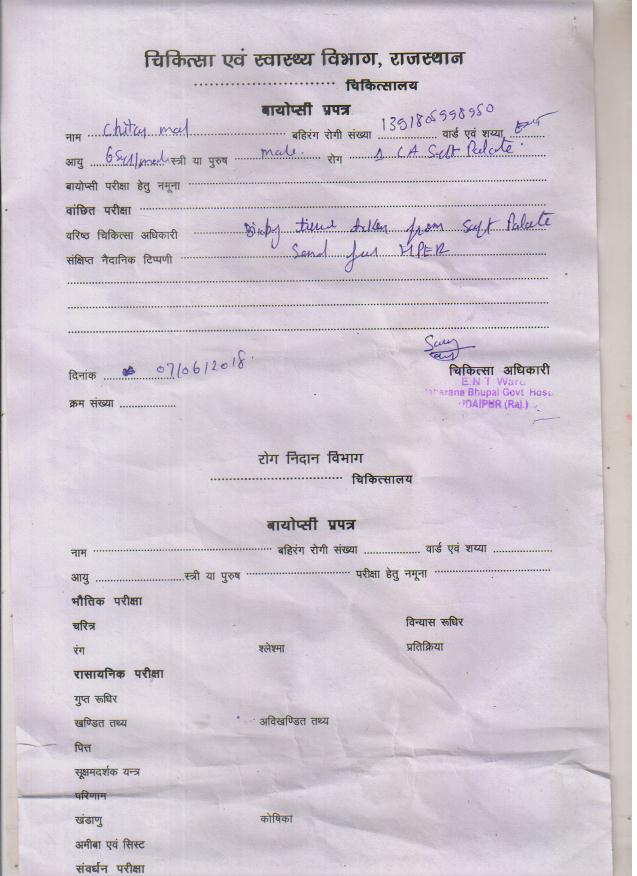 चिकित्सा एवं स्वास्थ्य विभाग, राजस्थान
चिकित्सालय
बायोप्सी प्रपत्र
नाम Chitar mal बहिरंग रोगी संख्या वार्ड एवं शय्या
आयु 65y/male स्त्री या पुरुष male रोग CA Soft Palate
बायोप्सी परीक्षा हेतु नमूना
वांछित परीक्षा
वरिष्ठ चिकित्सा अधिकारी tissue taken from Soft Palate
संक्षिप्त नैदानिक टिप्पणी Send for HPER
दिनांक 07/06/2018
चिकित्सा अधिकारी
E.N.T Ward
Bhupal Govt Hosp.
UDAIPUR (Raj.)
क्रम संख्या
रोग निदान विभाग
चिकित्सालय
बायोप्सी प्रपत्र
नाम बहिरंग रोगी संख्या वार्ड एवं शय्या
आयु स्त्री या पुरुष परीक्षा हेतु नमूना
भौतिक परीक्षा
चरित्र विन्यास रूधिर
रंग श्लेश्मा प्रतिक्रिया
रासायनिक परीक्षा
गुप्त रूधिर
खण्डित तथ्य अविखण्डित तथ्य
पित्त
सूक्षमदर्शक यन्त्र
परिणाम
खंडाणु कोषिका
अमीबा एवं सिस्ट
संवर्धन परीक्षा